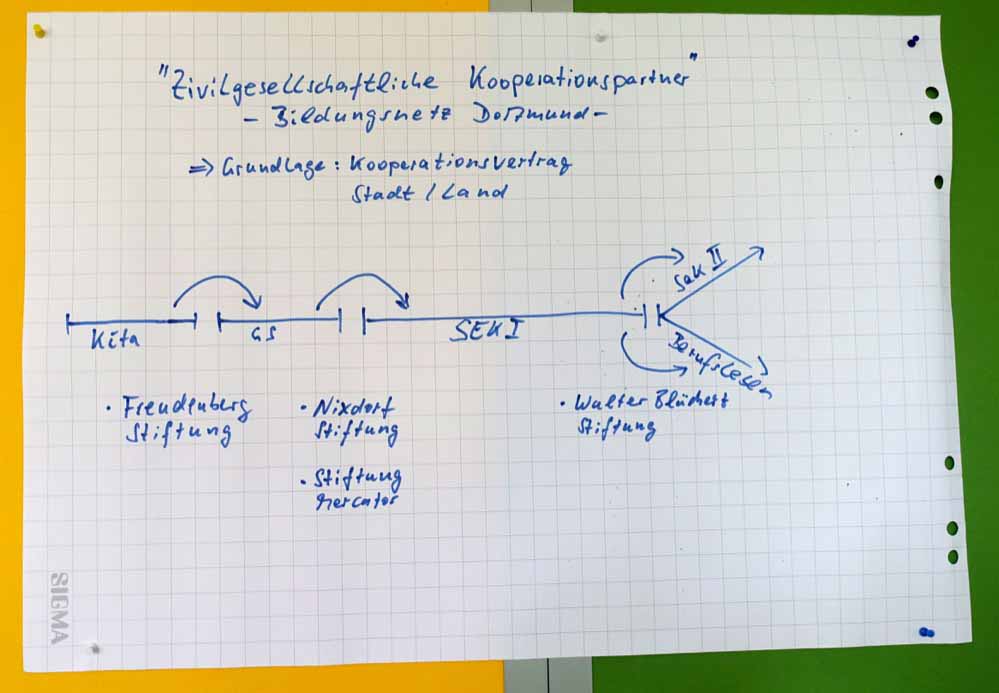 "Zivilgesellschaftliche Kooperationspartner"
- Bildungsnetz Dortmund -
=> Grundlage: Kooperationsvertrag
Stadt / Land
Kita
GS
SEK I
Sek II
Berufsleben
· Freudenberg
Stiftung
· Nixdorf
Stiftung
· Stiftung
Mercator
· Walter Blüchert
Stiftung
SIGMA